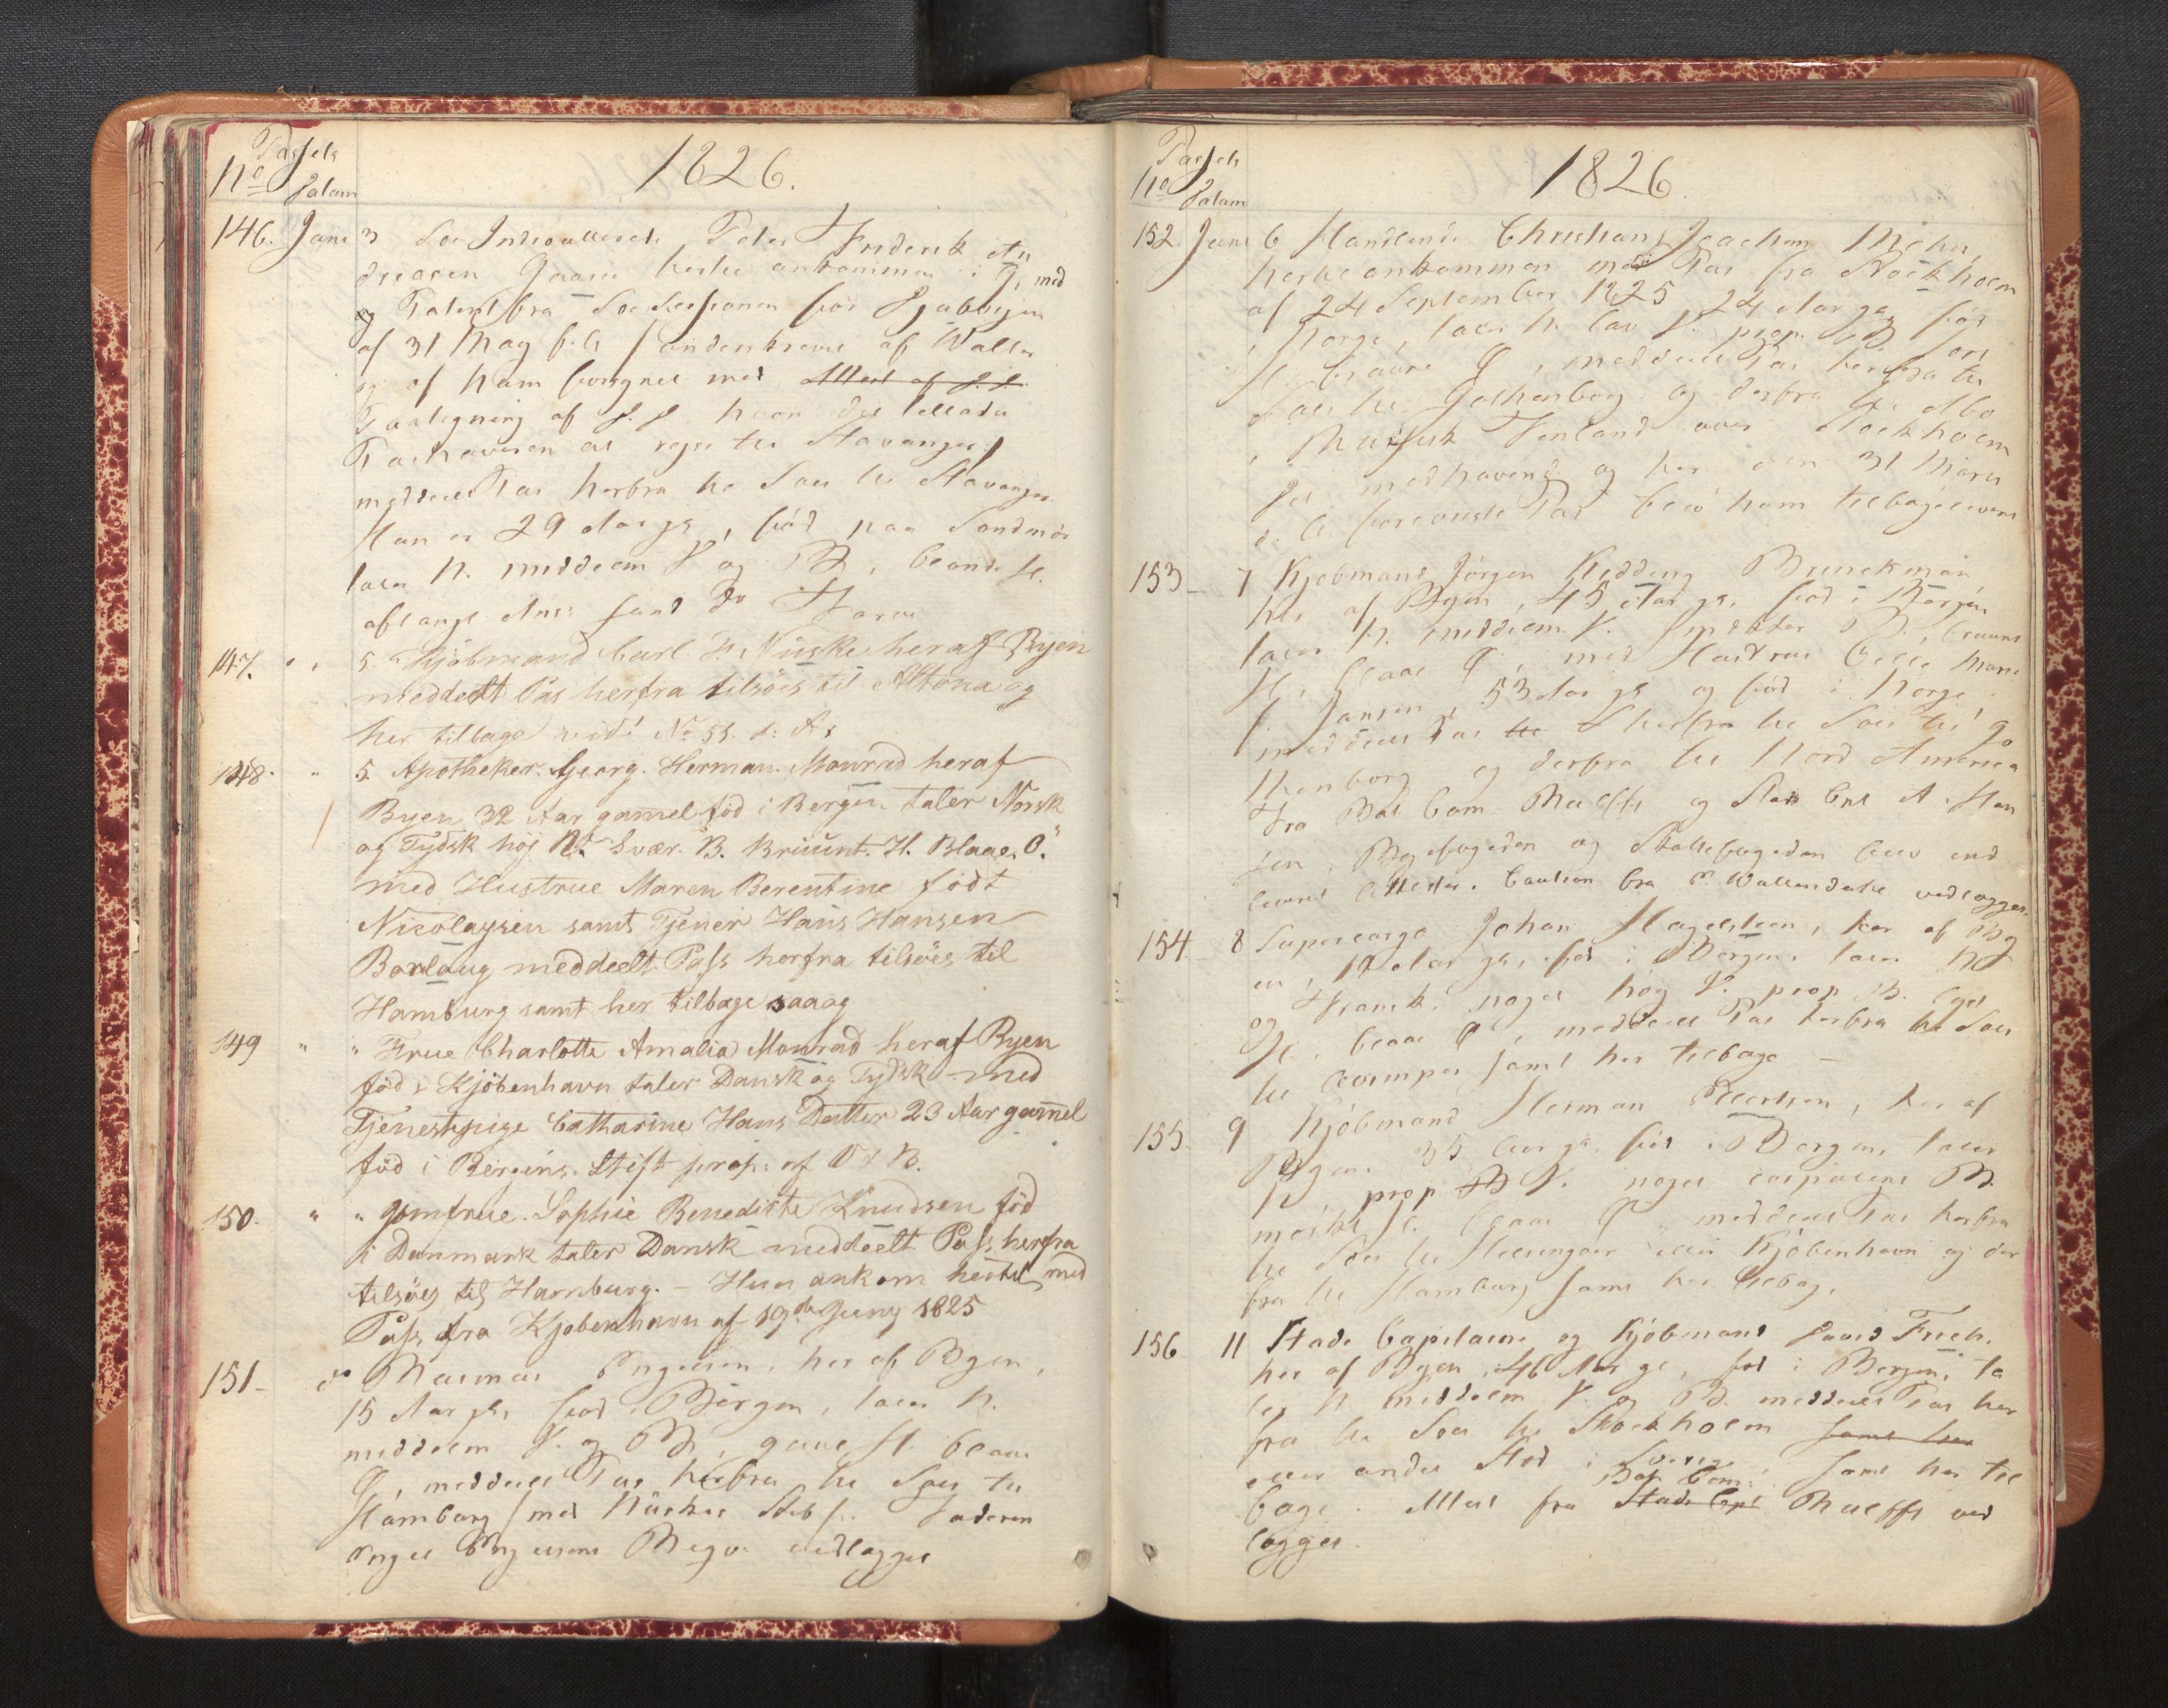 Passets
No Datum
1826.
146. Juni 3 Søe Indroullerede Peder Friderik An
dreasen Gaarn hertil ankommen i G, med
og Patent fra Søe Sessionen for
af 31 May f. A. underskreven af Walle
og af ham forsynet med Attest af J. J.
Paategning af J. J hvor det tillades
Pashaveren at rejse til Stavanger
meddeelt Pas herfra til Søes til Stavanger.
Han er 29 Aar gl, fød paa Søndmør
taler N. middelm V og B, blonde H.
aflangt Ans:
147. " " 5. Kjöbmand Carl F. Nüske her af Byen
meddeelt Pas herfra tilsöes til Altona og
her tilbage vid: No 55. d: A:
148. " 5. Apotheker Georg. Herman. Monrad her af
Byen 32 Aar gamel föd i Bergen taler Norsk
og Tydsk höj V. Svær. B. Bruunt. H. Blaae. O.
med Hustrue Maren Berentine födt
Nicolaysen samt Tjener Hans Hansen
Borlaug meddeelt Pass herfra tilsöes til
Hamburg samt her tilbage saa og
149 " " Frue Charlotte Amalia Monrad her af Byen
föd i Kjöbenhavn taler Dansk og Tydsk med
Tjenestpige Catharine Hans Datter 23 Aar gamel
föd i Bergens Stift prop: af V & B.
150. " " Jomfrue. Sophie Benedicte Knudsen föd
i Danmark taler Dansk meddeelt Pass herfra
tilsöes til Hamburg. - Hun ankom hertil med
Pass fra Kjøbenhavn af 19de Juny 1825
151 - do Rasmus Ingelsen, her af Byen,
15 Aar gl, fød i Bergen, taler N.
middelm V. og B, guul H. blaae
Ø, meddeelt Pas herfra til Søes til
Hamburg med Nüskes Skib Faderen
Engel Engelsens Begj. vedlagges
Passets
No Datum
1826.
152. Juni 6 Handlende Christian Joachim
hertil ankommen med Pas fra Stockholm
af 24 September 1825 24 Aar gl, fød
i Norge, taler N. lav V. prop. B sort
H. bruune Ø, meddeelt Pas herfra til
Søes til Gothenborg og derfra til Abo
i Russisk Finland over Stockholm
Det medhavende og her den 31 Marts
d. A. foreviste Pas blev ham tilbageleveret
153 - 7 Kjøbmand Jørgen Kedding Brinckman,
her af Byen, 45 Aar gl. fød i Bergen
taler N. middelm V. B., bruunt
H, blaae Ø, med Hustrue Marie
f. Jansen, 53 Aar gl og fød i Norge,
meddeelt Pas herfra til Søes til Go
thenborg og derfra til Nord America
Fra Bat. Com. Rulffs og Stads Cpt A. Han
sen, Byefogeden og Stiftefogeden blev ind
leveret Attester. Caution fra vedlægges.
154. 8 Supercargo Johan Hagelsteen, her af By
en, Aar gl, fød i Bergen, taler N
og Fransk, noget høy V. prop. B. lyst
H. blaae Ø, meddeelt Pas herfra til Søes
til samt her tilbage -
155. 9 Kjøbmand Herman Ellertsen, her af
Byen 35 Aar gl. fød i Bergen, taler
N prop B V. noget corpulent B.
mørkt H. blaae Ø meddeelt Pas herfra
til Søes til Helsingøer eller Kjøbenhavn og der
fra til Hamburg samt her tilbage.
156 11 Stads Capitaine og Kjøbmand David Frich,
her af Byen, 46 Aar gl, fød i Bergen, ta
ler N. middelm V. og B. meddeelt Pas her
fra til Søes til Stockholm samt her
eller andre Sted i Sverig samt her til
bage. Attest fra Stads Cpt Bat Com: Rulffs ved
lægges.